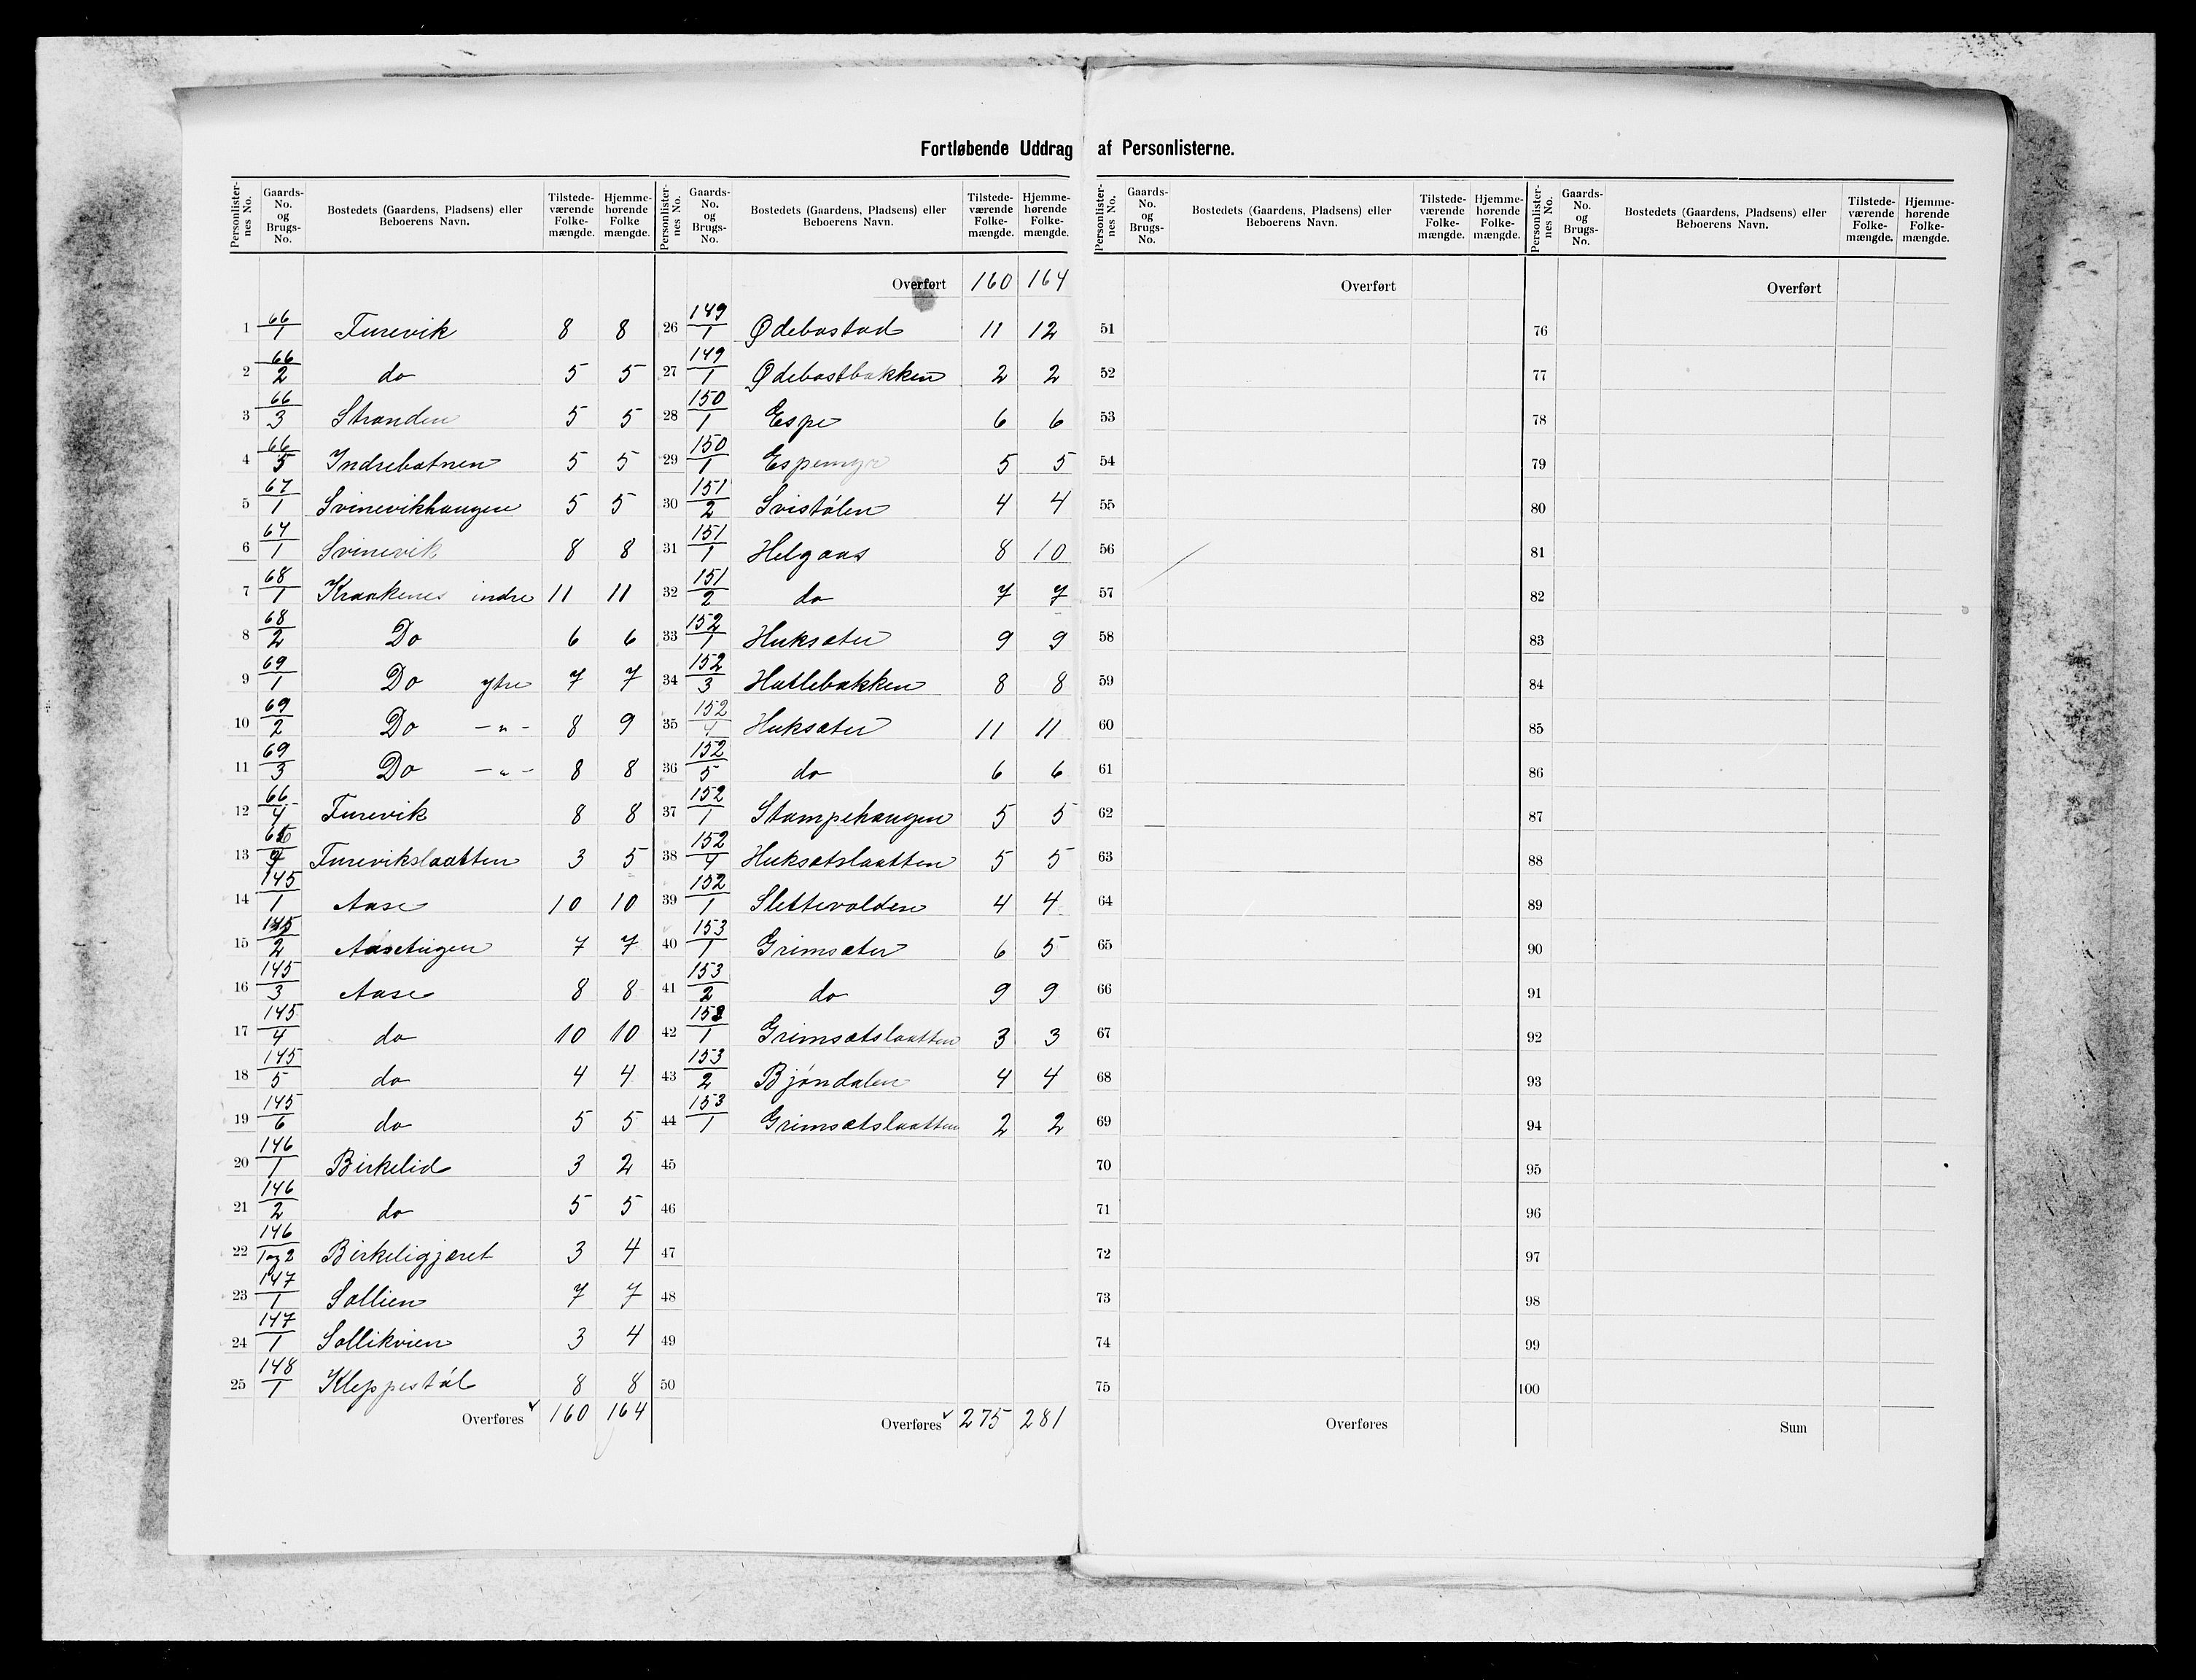 Fortløbende Uddrag af Personlisterne.
Personlisternes No. Gaards-No. og Brugs-No. Bostedets (Gaardens, Pladsens) eller Beboerens Navn. Tilstedeværende Folkemængde. Hjemmehørende Folkemængde.
1 66/1 Furevik 8 8
2 66/2 do 5 5
3 66/3 Stranden 5 5
4 66/5 Indrebotnen 5 5
5 67/1 Svinevikhaugen 5 5
6 67/1 Svinevik 8 8
7 68/1 Kraakenes indre 11 11
8 68/2 Do 6 6
9 69/1 Do ytre 7 7
10 69/2 Do -"- 8 9
11 69/3 Do -"- 8 8
12 66/4 Furevik 8 8
13 Furevikslaatten 3 5
14 145/1 Aase 10 10
15 145/2 Aaseteigen 7 7
16 145/3 Aase 8 8
17 145/4 do 10 10
18 145/5 do 4 4
19 145/6 do 5 5
20 146/1 Birkelid 3 2
21 146/2 do 5 5
22 146/1og2 Birkeligjæret 3 4
23 147/1 Sollien 7 7
24 147/1 Sollikvien 3 4
25 148/1 Kleppestøl 8 8
Overføres 160 164
Personlisternes No. Gaards-No. og Brugs-No. Bostedets (Gaardens, Pladsens) eller Beboerens Navn. Tilstedeværende Folkemængde. Hjemmehørende Folkemængde.
Overført 160 164
26 149/1 Ødebostad 11 12
27 149/1 Ødebostbakken 2 2
28 150/1 Espe 6 6
29 150/1 Espemyr 5 5
30 151/2 Svistølen 4 4
31 151/1 Helgaas 8 10
32 151/2 do 7 7
33 152/1 Huksæter 9 9
34 152/3 Hatlebakken 8 8
35 152/4 Huksæter 11 11
36 152/5 do 6 6
37 152/1 Stampehaugen 5 5
38 152/4 Huksætslaatten 5 5
39 152/1 Slettevolden 4 4
40 153/1 Grimsæter 6 5
41 153/2 do 9 9
42 153/1 Grimsætslaatten 3 3
43 153/2 Bjøndalen 4 4
44 153/1 Grimsætslaatten 2 2
45
46
47
48
49
50
Overføres 275 281
Personlisternes No. Gaards-No. og Brugs-No. Bostedets (Gaardens, Pladsens) eller Beboerens Navn. Tilstedeværende Folkemængde. Hjemmehørende Folkemængde.
Overført
51
52
53
54
55
56
57
58
59
60
61
62
63
64
65
66
67
68
69
70
71
72
73
74
75
Overføres
Personlisternes No. Gaards-No. og Brugs-No. Bostedets (Gaardens, Pladsens) eller Beboerens Navn. Tilstedeværende Folkemængde. Hjemmehørende Folkemængde.
Overført
76
77
78
79
80
81
82
83
84
85
86
87
88
89
90
91
92
93
94
95
96
97
98
99
100
Sum